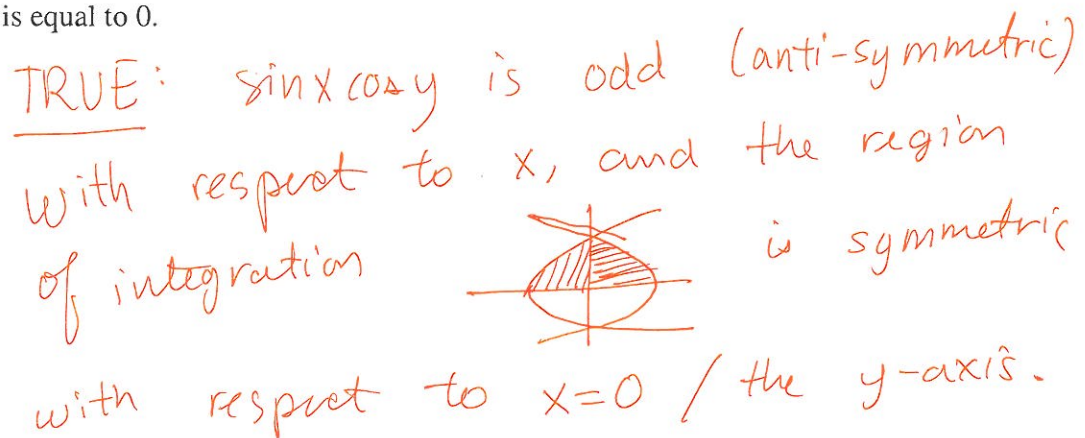 is equal to 0.
TRUE: sinx cosy is odd (anti-symmetric)
with respect to x, and the region
of integration is symmetric
with respect to x=0 / the y-axis.